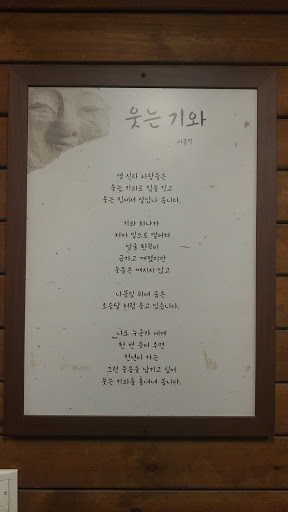 웃는 기와
이봉직
옛 신라 사람들은
웃는 기와로 집을 짓고
웃는 집에서 살았나 봅니다.
기와 하나가
처마 밑으로 떨어져
얼굴 한쪽이
금가고 깨졌지만
웃음은 깨지지 않고
나뭇잎 뒤에 숨은
초승달처럼 웃고 있습니다.
나도 누군가에게
한 번 웃어 주면
천년을 가는
그런 웃음을 남기고 싶어
웃는 기와를 흉내내 봅니다.